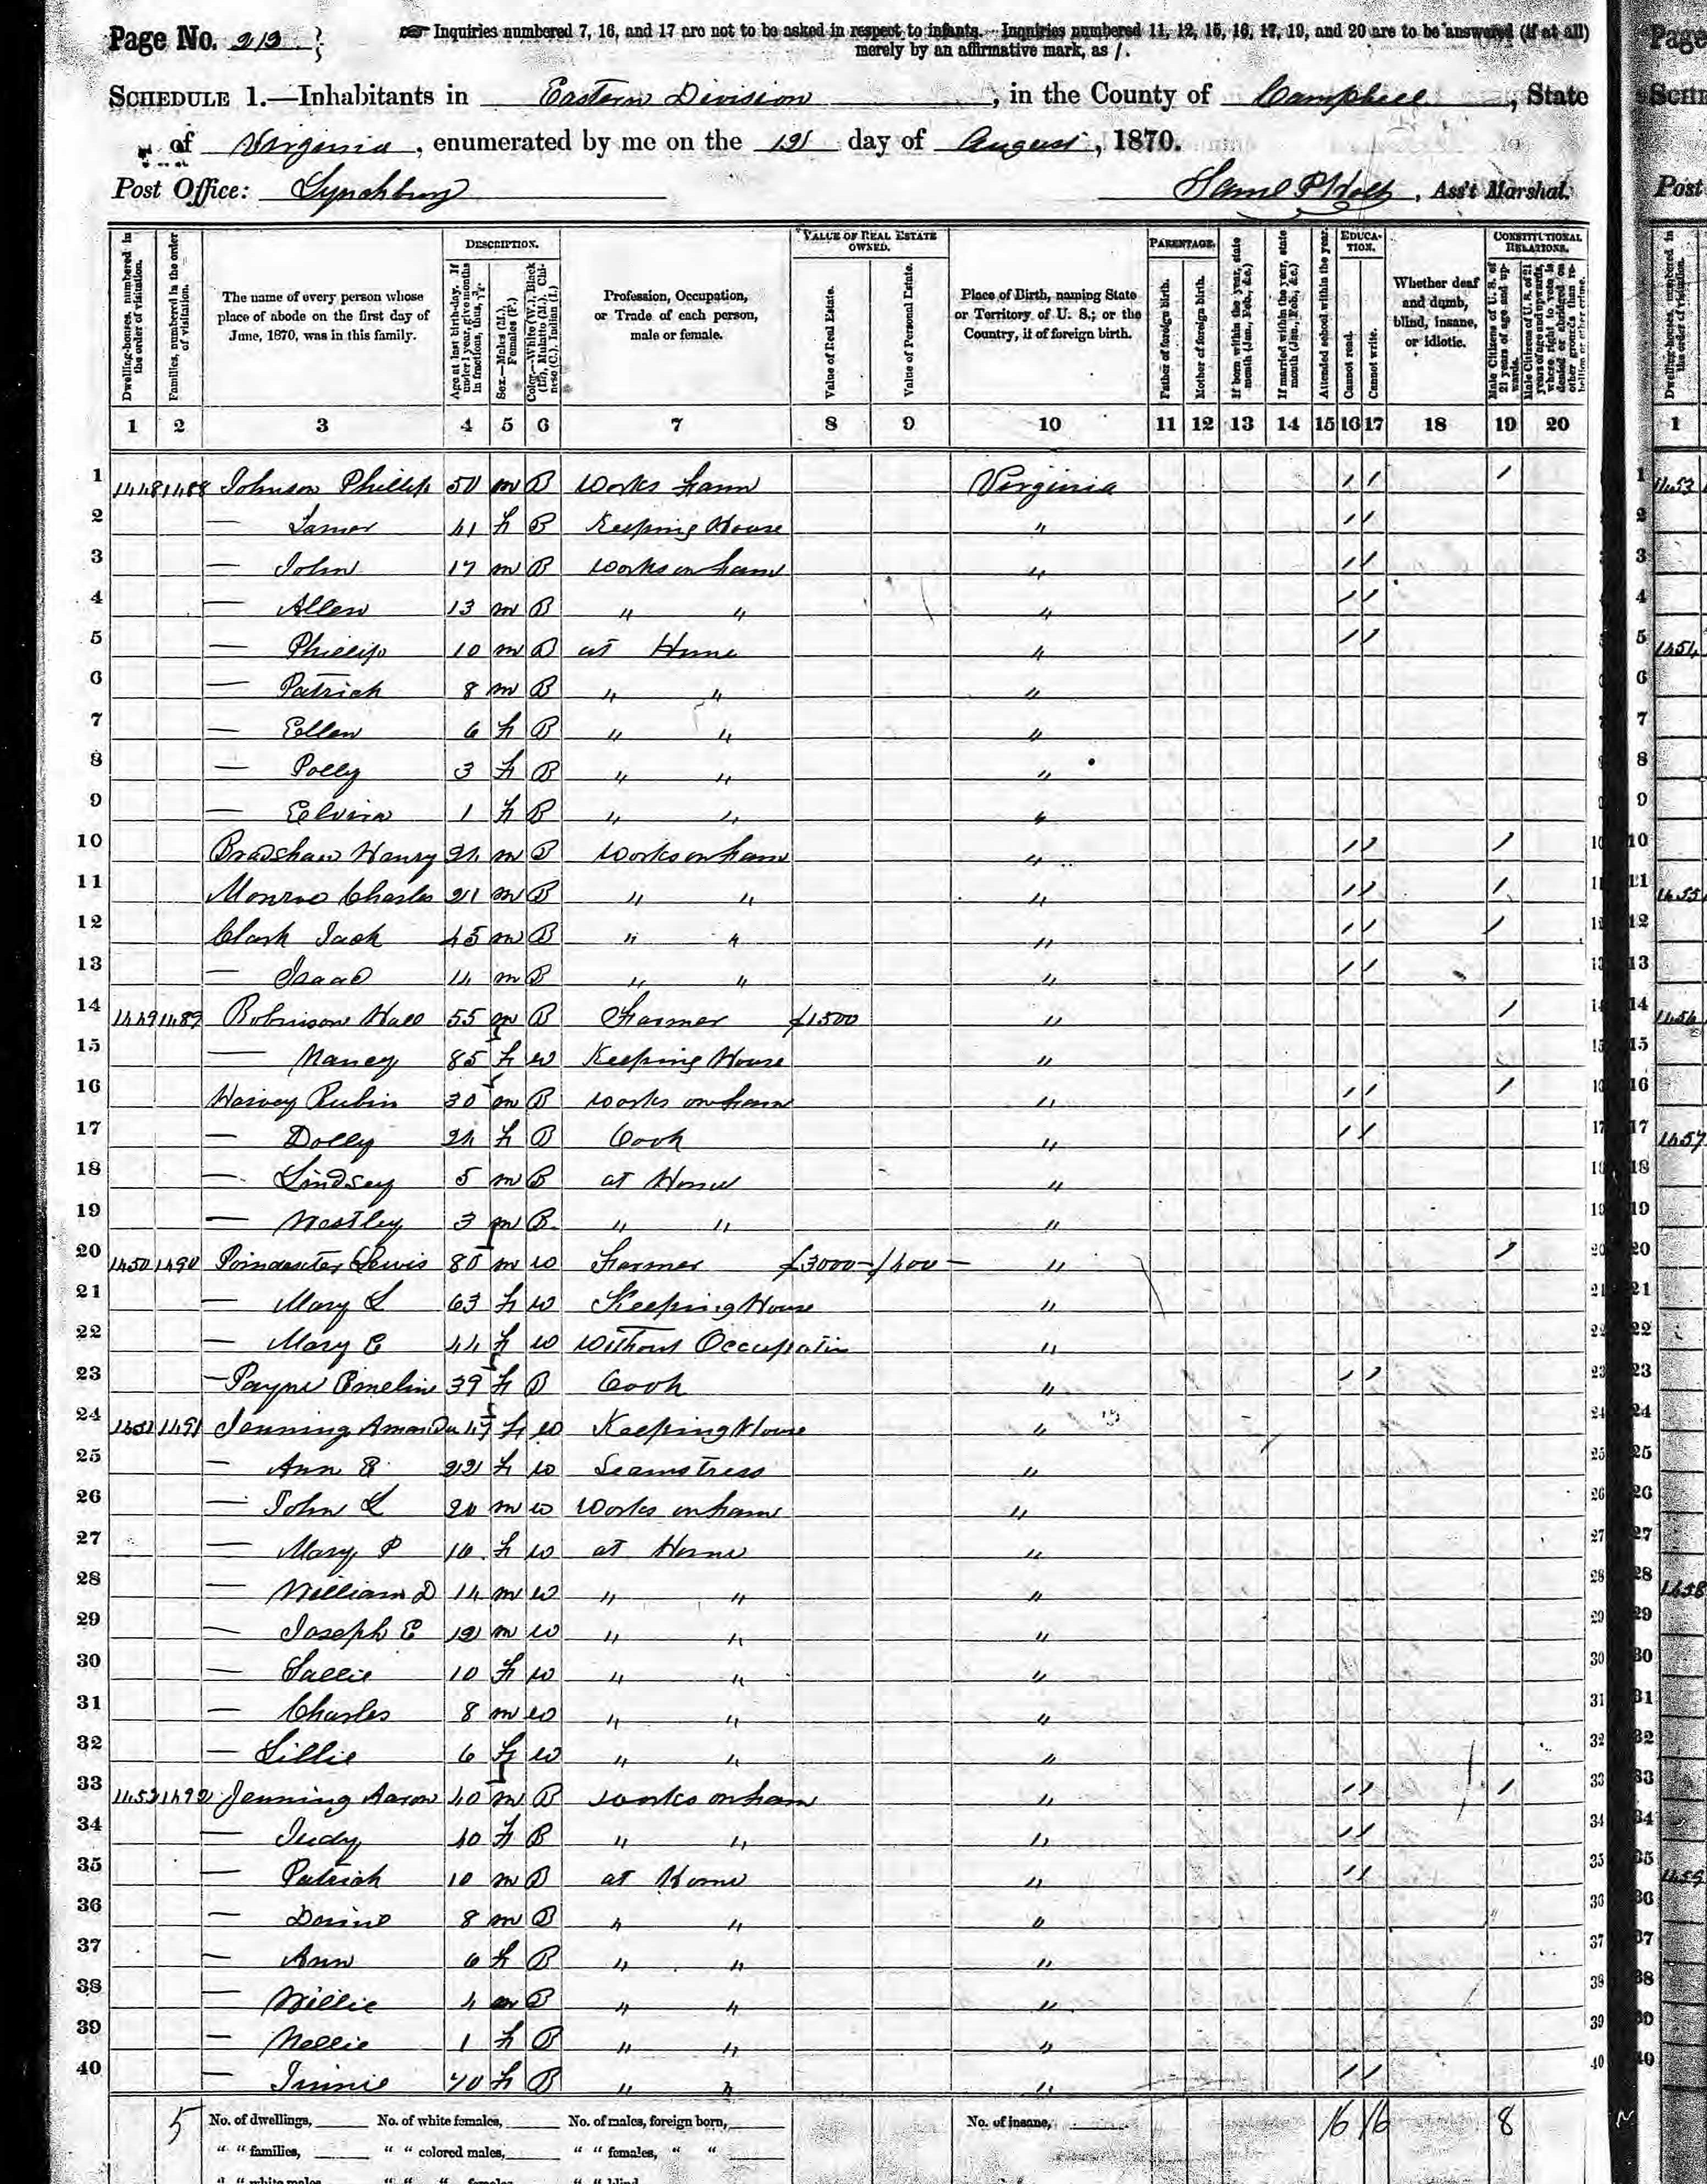 Page No. 213
☞ Inquiries numbered 7, 16, and 17 are not to be asked in respect to infants. Inquiries numbered 11, 12, 15, 16, 17, 19, and 20 are to be answered (if at all)
merely by an affirmative mark, as /.
SCHEDULE 1.—Inhabitants in Eastern Division, in the County of Campbell, State
of Virginia, enumerated by me on the 12 day of August, 1870.
Post Office: Lynchburg Saml P Holt, Ass't Marshal.
Dwelling-houses, numbered in the order of visitation.
Families, numbered in the order of visitation.
The name of every person whose place of abode on the first day of June, 1870, was in this family.
DESCRIPTION.
Age at last birth-day. If under 1 year, give months in fractions, thus, 3/12
Sex.—Males (M.), Females (F.)
Color.—White (W.), Black (B.), Mulatto (M.), Chinese (C.), Indian (I.)
Profession, Occupation, or Trade of each person, male or female.
VALUE OF REAL ESTATE OWNED.
Value of Real Estate.
Value of Personal Estate.
Place of Birth, naming State or Territory of U. S.; or the Country, if of foreign birth.
PARENTAGE.
Father of foreign birth.
Mother of foreign birth.
If born within the year, state month (Jan., Feb., &c.)
If married within the year, state month (Jan., Feb., &c.)
EDUCATION.
Attended school within the year.
Cannot read.
Cannot write.
Whether deaf and dumb, blind, insane, or idiotic.
CONSTITUTIONAL RELATIONS.
Male Citizens of U. S. of 21 years of age and upwards.
Male Citizens of U. S. of 21 years of age and upwards, where right to vote is denied or abridged on other grounds than rebellion or other crime.
1 2 3 4 5 6 7 8 9 10 11 12 13 14 15 16 17 18 19 20
1 1448 1488 Johnson Phillip 50 m B Works Farm Virginia / / /
2 — 41 f B Keeping House " / /
3 — John 17 m B Works on Farm " / /
4 — Allen 13 m B " " " / /
5 — Phillip 10 m B at Home " / /
6 — Patrick 8 m B " " "
7 — Ellen 6 f B " " "
8 — Polly 3 f B " " "
9 — Elvira 1 f B " " "
10 Bradshaw Henry 24 m B Works on Farm " / / /
11 Monroe Charles 21 m B " " " / / /
12 Clark Jack 45 m B " " " / / /
13 — Isaac 14 m B " " " / /
14 1449 1489 Robinson Hall 55 m B Farmer $1500 " /
15 — Nancy 85 f W Keeping House "
16 Harvey Rubin 30 m B Works on Farm " / / /
17 — Dolly 24 f B Cook " / /
18 — Lindsey 5 m B at Home "
19 — Westley 3 m B " " "
20 1450 1490 Poindexter Lewis 80 m W Farmer $3000 — $400 — " /
21 — Mary L 63 f W Keeping House "
22 — Mary E 44 f W Without Occupatin "
23 — Payne Emeline 39 f B Cook " / /
24 1451 1491 Jenning Amanda 47 f W Keeping House "
25 — Ann 22 f W Seamstress "
26 — John L 20 m W Works on Farm "
27 — Mary P 16 f W at Home "
28 — William D 14 m W " " "
29 — Joseph E 12 m W " " "
30 — Sallie 10 f W " " "
31 — Charles 8 m W " " "
32 — Lillie 6 f W " " "
33 1452 1492 Jenning Aaron 40 m B works on Farm " / / /
34 — Judy 40 f B " " " / /
35 — Patrick 10 m B at Home " / /
36 — 8 m B " " "
37 — Ann 6 f B " " "
38 — Willie 4 m B " " "
39 — Nellie 1 f B " " "
40 — 70 f B " " " / /
5 No. of dwellings, No. of white females, No. of males, foreign born, No. of insane, 16 16 8
" " families, " " colored males, " " females, " "
Page
SCHE
Post
Dwelling-houses, numbered in the order of visitation.
1
1 1453
5 1454
11 1455
14 1456
17 1457
28 1458
35 1459